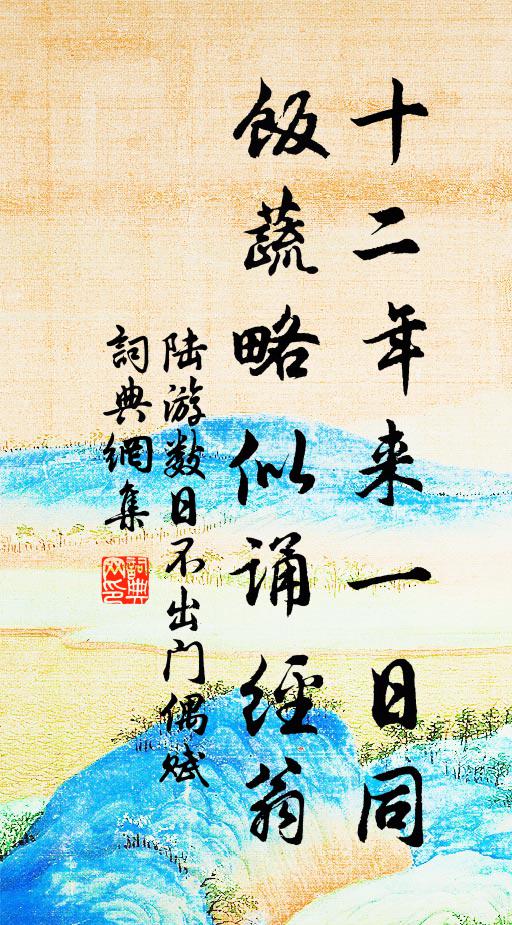 十二年来一日同
飯蔬略似诵經翁
陆游数日不出门偶赋
詞典網集
詞典網印